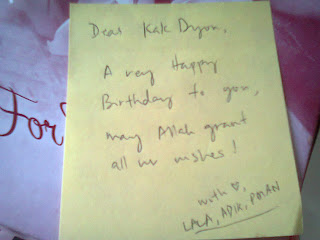 Dear Kak Dyon,
A very Happy
Birthday to you,
may Allah grant
all ur wishes!
with ♡,
LALA, ADIK,
For